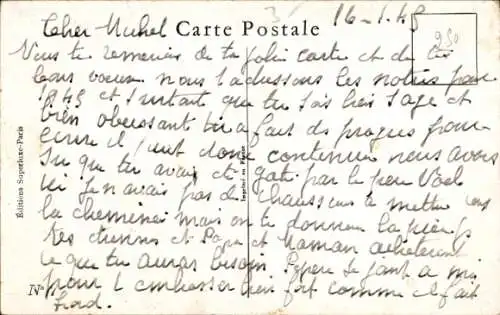 16-1.45
Cher Michel Carte Postale
Nous te remercions de ta jolie carte et de tes
bons voeux nous t'adressons les notres pour
1945 et surtout que tu sois bien sage et
bien obeissant tu a fait des progres pour
ecrire il faut donc continuer nous avons
su que tu avais et gate par le pere Noel
ici Je n'avais pas de chaussons a mettre
la cheminee mais on te donnera la
tes etrennes et Papa et Maman acheteront
ce que tu auras besoin Pepere Le a mis
pour t'embrasser bien fort comme il fait
froid.
250
Editions Superluxe-Paris
Imprimé en France
N°